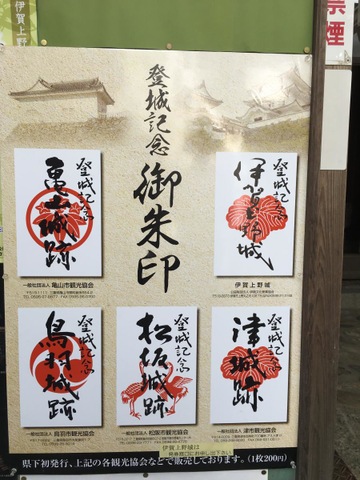 伊賀上野
禁煙
登城記念
御朱印
登城記念
亀山城跡
一般社団法人 亀山市観光協会
登城記念
伊賀上野城
伊賀上野城
登城記念
鳥羽城跡
一般社団法人 鳥羽市観光協会
登城記念
松阪城跡
一般社団法人 松阪市観光協会
登城記念
津城跡
一般社団法人 津市観光協会
伊賀上野城は
県下初発行、上記の各観光協会などで販売しております。(1枚200円)